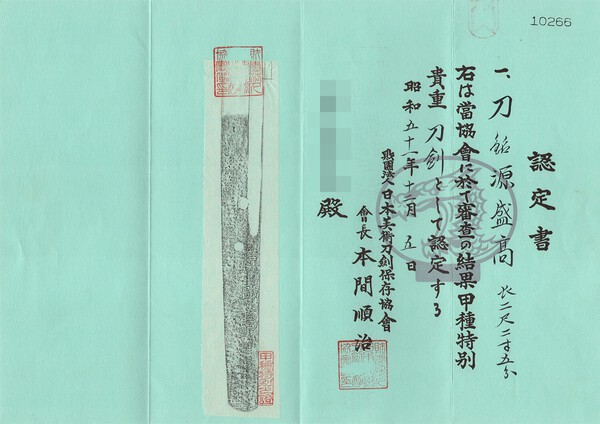 10266
認定書
一、刀 銘 源盛高 長二尺二寸五分
右は當協會に於て審査の結果甲種特別
貴重刀剣として認定する
昭和五十一年十二月五日
財團法人日本美術刀剣保存協會
會長 本間順治
殿